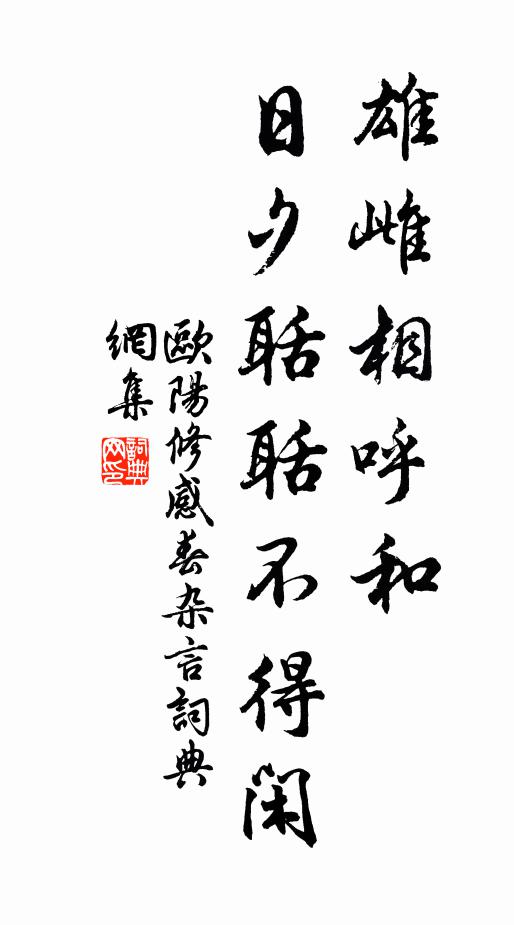 雄雌相呼和
日夕聒聒不得闲
歐陽修感春杂言詞典
網集
詞典
网印